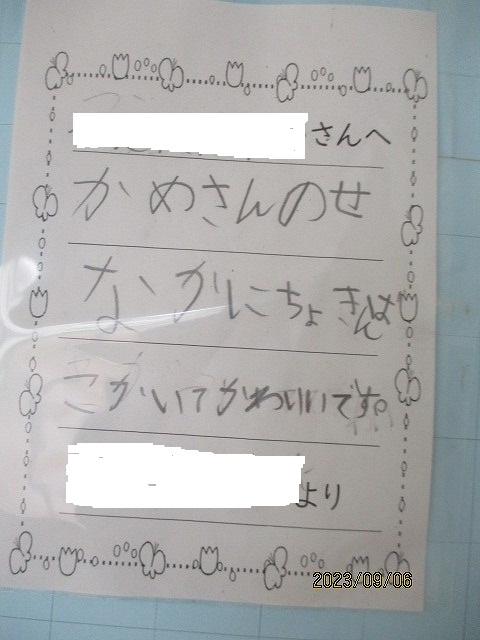 さんへ
かめさんのせ
なかにちょきんば
こがいてかわいいです。
より
2023/09/06